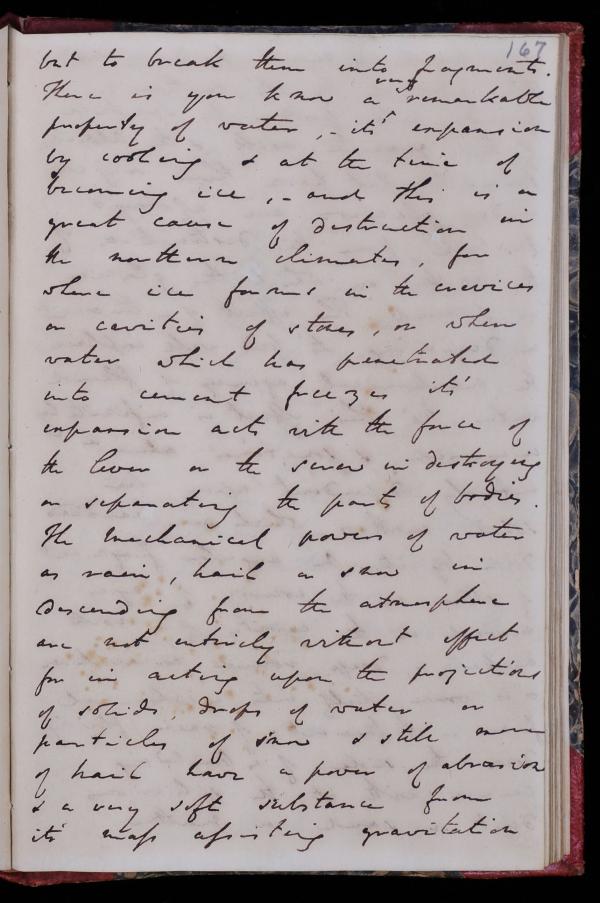 167
but to break them into fragments.
There is you know a very remarkable
property of water, - it's expansion
by cooling & at the time of
becoming ice, - and this is a
great cause of destruction in
the northern climates, for
where ice forms in the crevices
or cavities of stones, or when
water which has penetrated
into cement freezes it's
expansion acts with the force of
the lever or the screw in destroying
or separating the parts of bodies.
The mechanical powers of water
as rain, hail or snow in
descending from the atmosphere
are not entirely without effect
for in acting upon the projections
of solids, drops of water or
particles of snow & still more
of hail have a power of abrasion
& a very soft substance from
it's mass assisting gravitation